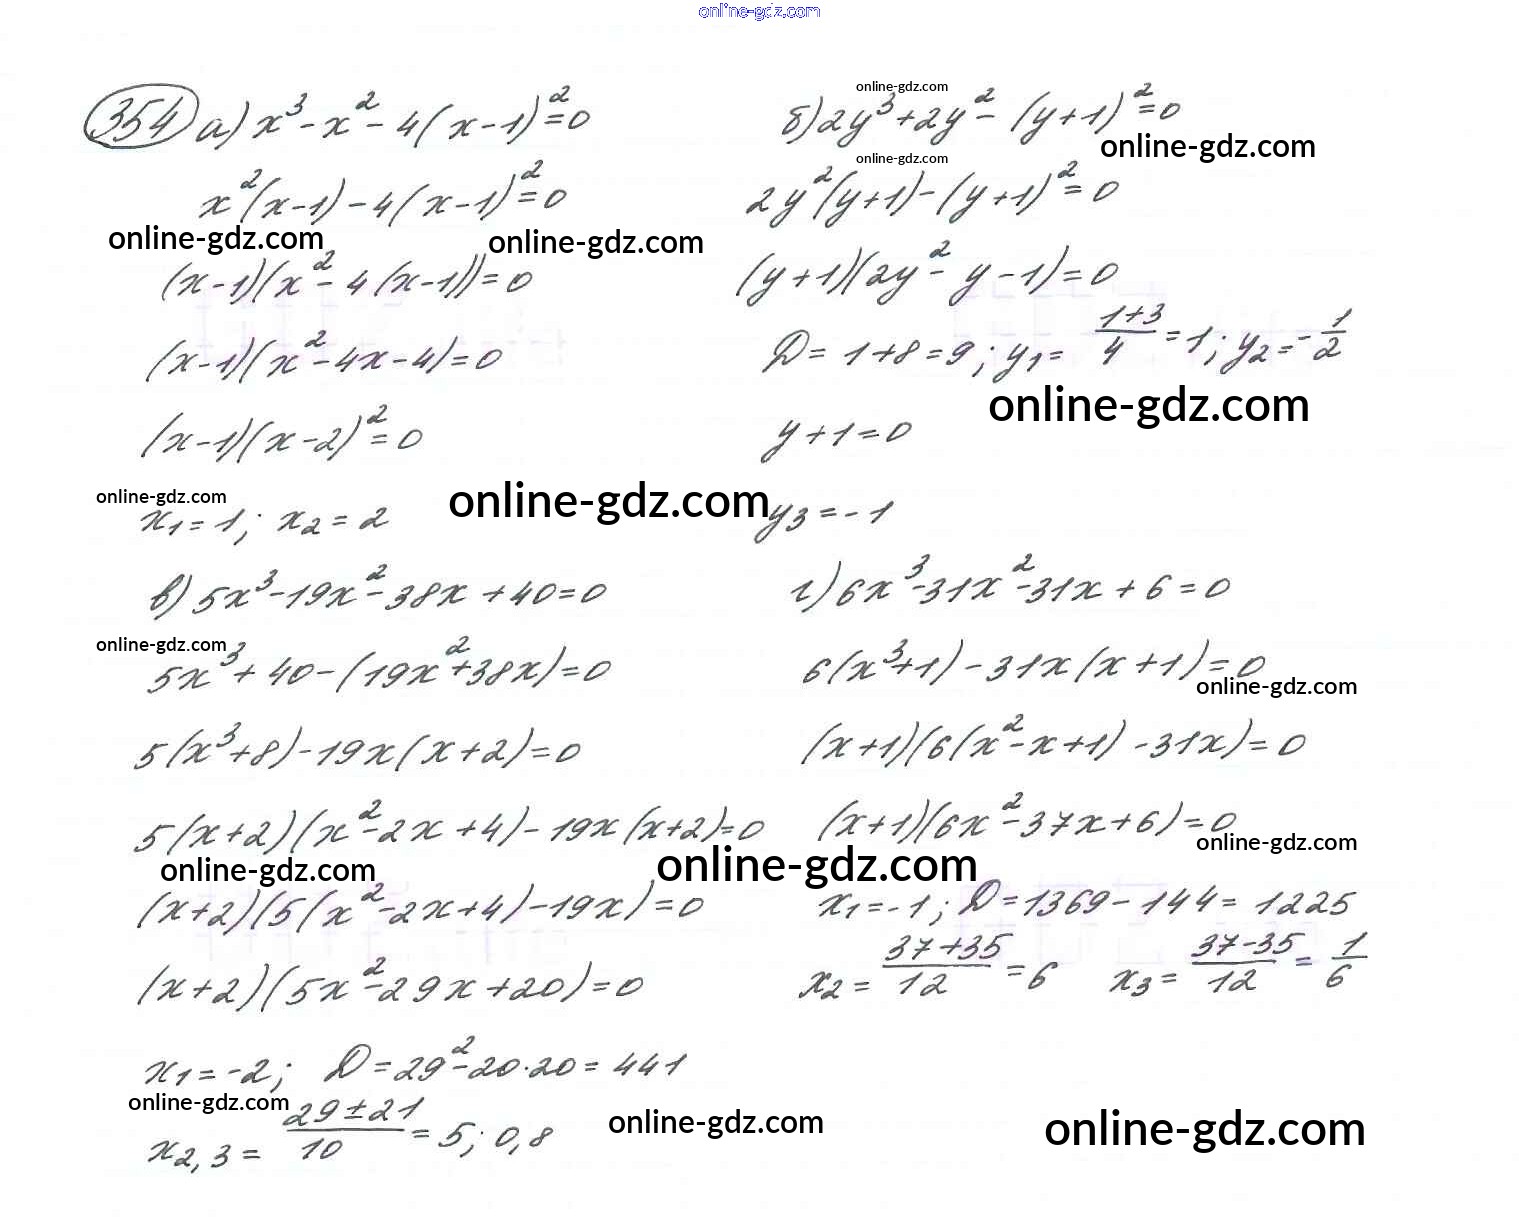 online-gdz.com
354 а) x³ - x² - 4(x-1)² = 0
x²(x-1) - 4(x-1)² = 0
online-gdz.com online-gdz.com
(x-1)(x² - 4(x-1)) = 0
(x-1)(x² - 4x - 4) = 0
(x-1)(x-2)² = 0
online-gdz.com online-gdz.com
x₁ = 1; x₂ = 2
online-gdz.com
б) 2y³ + 2y² - (y+1)² = 0
online-gdz.com
online-gdz.com
2y²(y+1) - (y+1)² = 0
(y+1)(2y² - y - 1) = 0
D = 1+8 = 9; y₁ = (1+3)/4 = 1; y₂ = -1/2
online-gdz.com
y+1 = 0
y₃ = -1
в) 5x³ - 19x² - 38x + 40 = 0
online-gdz.com
5x³ + 40 - (19x² + 38x) = 0
5(x³+8) - 19x(x+2) = 0
5(x+2)(x² - 2x + 4) - 19x(x+2) = 0
online-gdz.com online-gdz.com
(x+2)(5(x² - 2x + 4) - 19x) = 0
(x+2)(5x² - 29x + 20) = 0
x₁ = -2; D = 29² - 20·20 = 441
online-gdz.com
x₂,₃ = (29±21)/10 = 5; 0,8
г) 6x³ - 31x² - 31x + 6 = 0
6(x³+1) - 31x(x+1) = 0
online-gdz.com
(x+1)(6(x² - x + 1) - 31x) = 0
(x+1)(6x² - 37x + 6) = 0
online-gdz.com
x₁ = -1; D = 1369 - 144 = 1225
x₂ = (37+35)/12 = 6 x₃ = (37-35)/12 = 1/6
online-gdz.com online-gdz.com